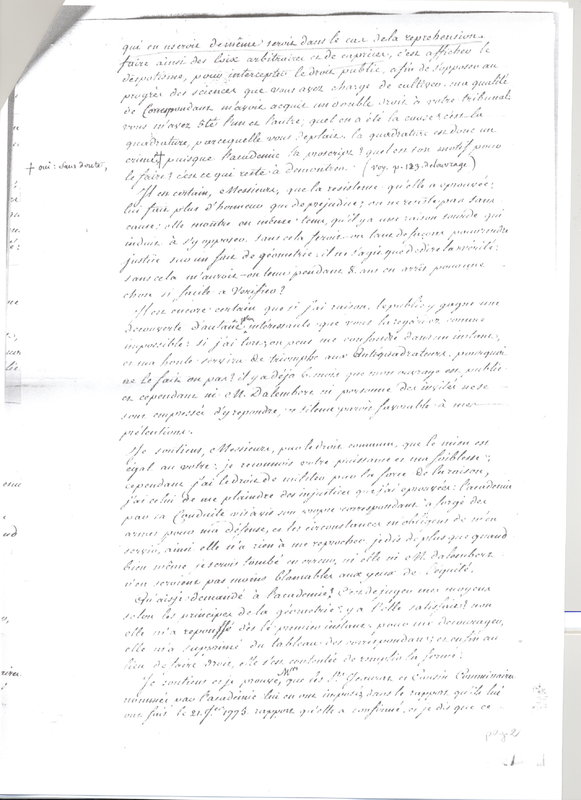 qui en useroit de même seroit dans le cas de la reprehension.
faire ainsi des loix arbitraires et de caprices, c'est afficher le
despotisme, pour intercepter le droit public, afin de s'opposer au
progrès des sciences que vous avez charge de cultiver. ma qualité
de Correspondant m'avoit acquis un double droit à votre tribunal
vous m'avez ôté l'un et l'autre; quel en a été la cause? c'est la
quadrature, parceque elle vous deplait. la quadrature est donc un
crime + puisque l'academie la proscripe? quel est son motif pour
+ oui: sans doute,
le faire? c'est ce qui reste à demontrer. (voy. p. 123 de l'ouvrage)
Il est certain, Messieurs, que la résistance qu'elle a eprouvée,
lui fait plus d'honneur que de prejudice; on ne resiste pas sans
cause: elle montre en même tems, qu'il y a une raison sourde qui
induit à s'y opposer. sans cela feroit-on tant de façons pour rendre
justice sur un fait de géometrie. il ne s'agit que de dire la vérité.
sans cela m'auroit-on tenu pendant 8 ans en arrès pour une
chose si facile a verifier?
Il est encore certain que si j'ai raison, le public y gagne une
decouverte d'autant plus interessante que vous la regardez comme
impossible: si j'ai tort, on peut me confondre dans un instant,
et ma honte servira de triomphe aux antiquadrateurs. pourquoi
ne le fait on pas? il y a déja 6 mois que mon ouvrage est publié
et cependant ni M. Dalembert ni personne des invités ne se
sont empressés d'y repondre, et silence paroit favorable à mes
prétentions.
Je soutiens, Messieurs, par le droit commun, que le mien est
égal au votre: je reconnois votre puissance et ma faiblesse;
cependant j'ai le droit de militer par la force de la raison,
j'ai celui de me plaindre des injustices que j'ai eprouvées: l'academie
par sa Conduite vis à vis son propre correspondant a forgé des
armes pour ma défense, et les circonstances m'obligent de m'en
servir, ainsi elle n'a rien à me reprocher. je dis de plus que quand
bien même je serois tombé en erreur, ni elle ni M. Dalembert
n'en seroient pas moins blamables aux yeux de l'equité.
Qu'ai-je demandé à l'academie? C'est de juger mes moyens
selon les principes de la géometrie; y a t'elle satisfait? non
elle m'a repoussé dès le premier instant, pour me decourager,
elle m'a supprimé du tableau des correspondans; et enfin au
lieu de faire droit, elle s'est contentée de remplir la forme.
Je soutiens et je prouve, que les Srs. et Cousin Commissaires
nommés par l'academie lui en ont imposés dans le rapport qu'ils lui
ont fait le 21 rapport qu'elle a confirmé. et je dis que ce
pag. 2